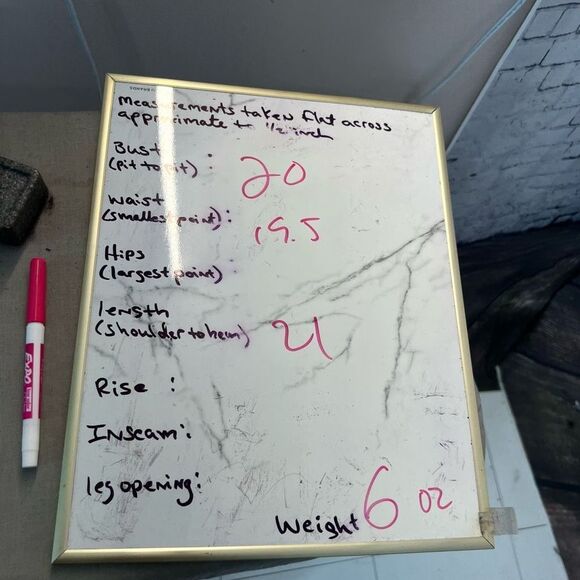 Measurements taken flat across
approximate to 1/2 inch
Bust : 20
(pit to pit)
waist
(smallest point): 19.5
Hips :
(largest point)
length
(shoulder to hem) 21
Rise :
Inseam:
leg opening:
Weight 6 oz
EXPO